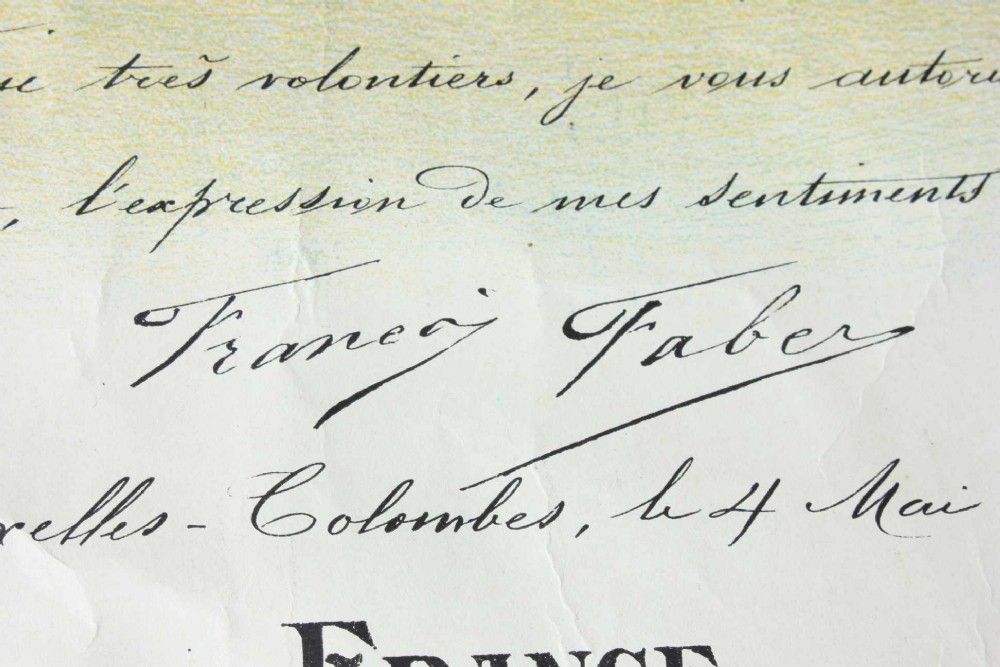 très volontiers, je vous autoris
l'expression de mes sentiments
François Faber
relles - Colombes, le 4 Mai
FRANCE